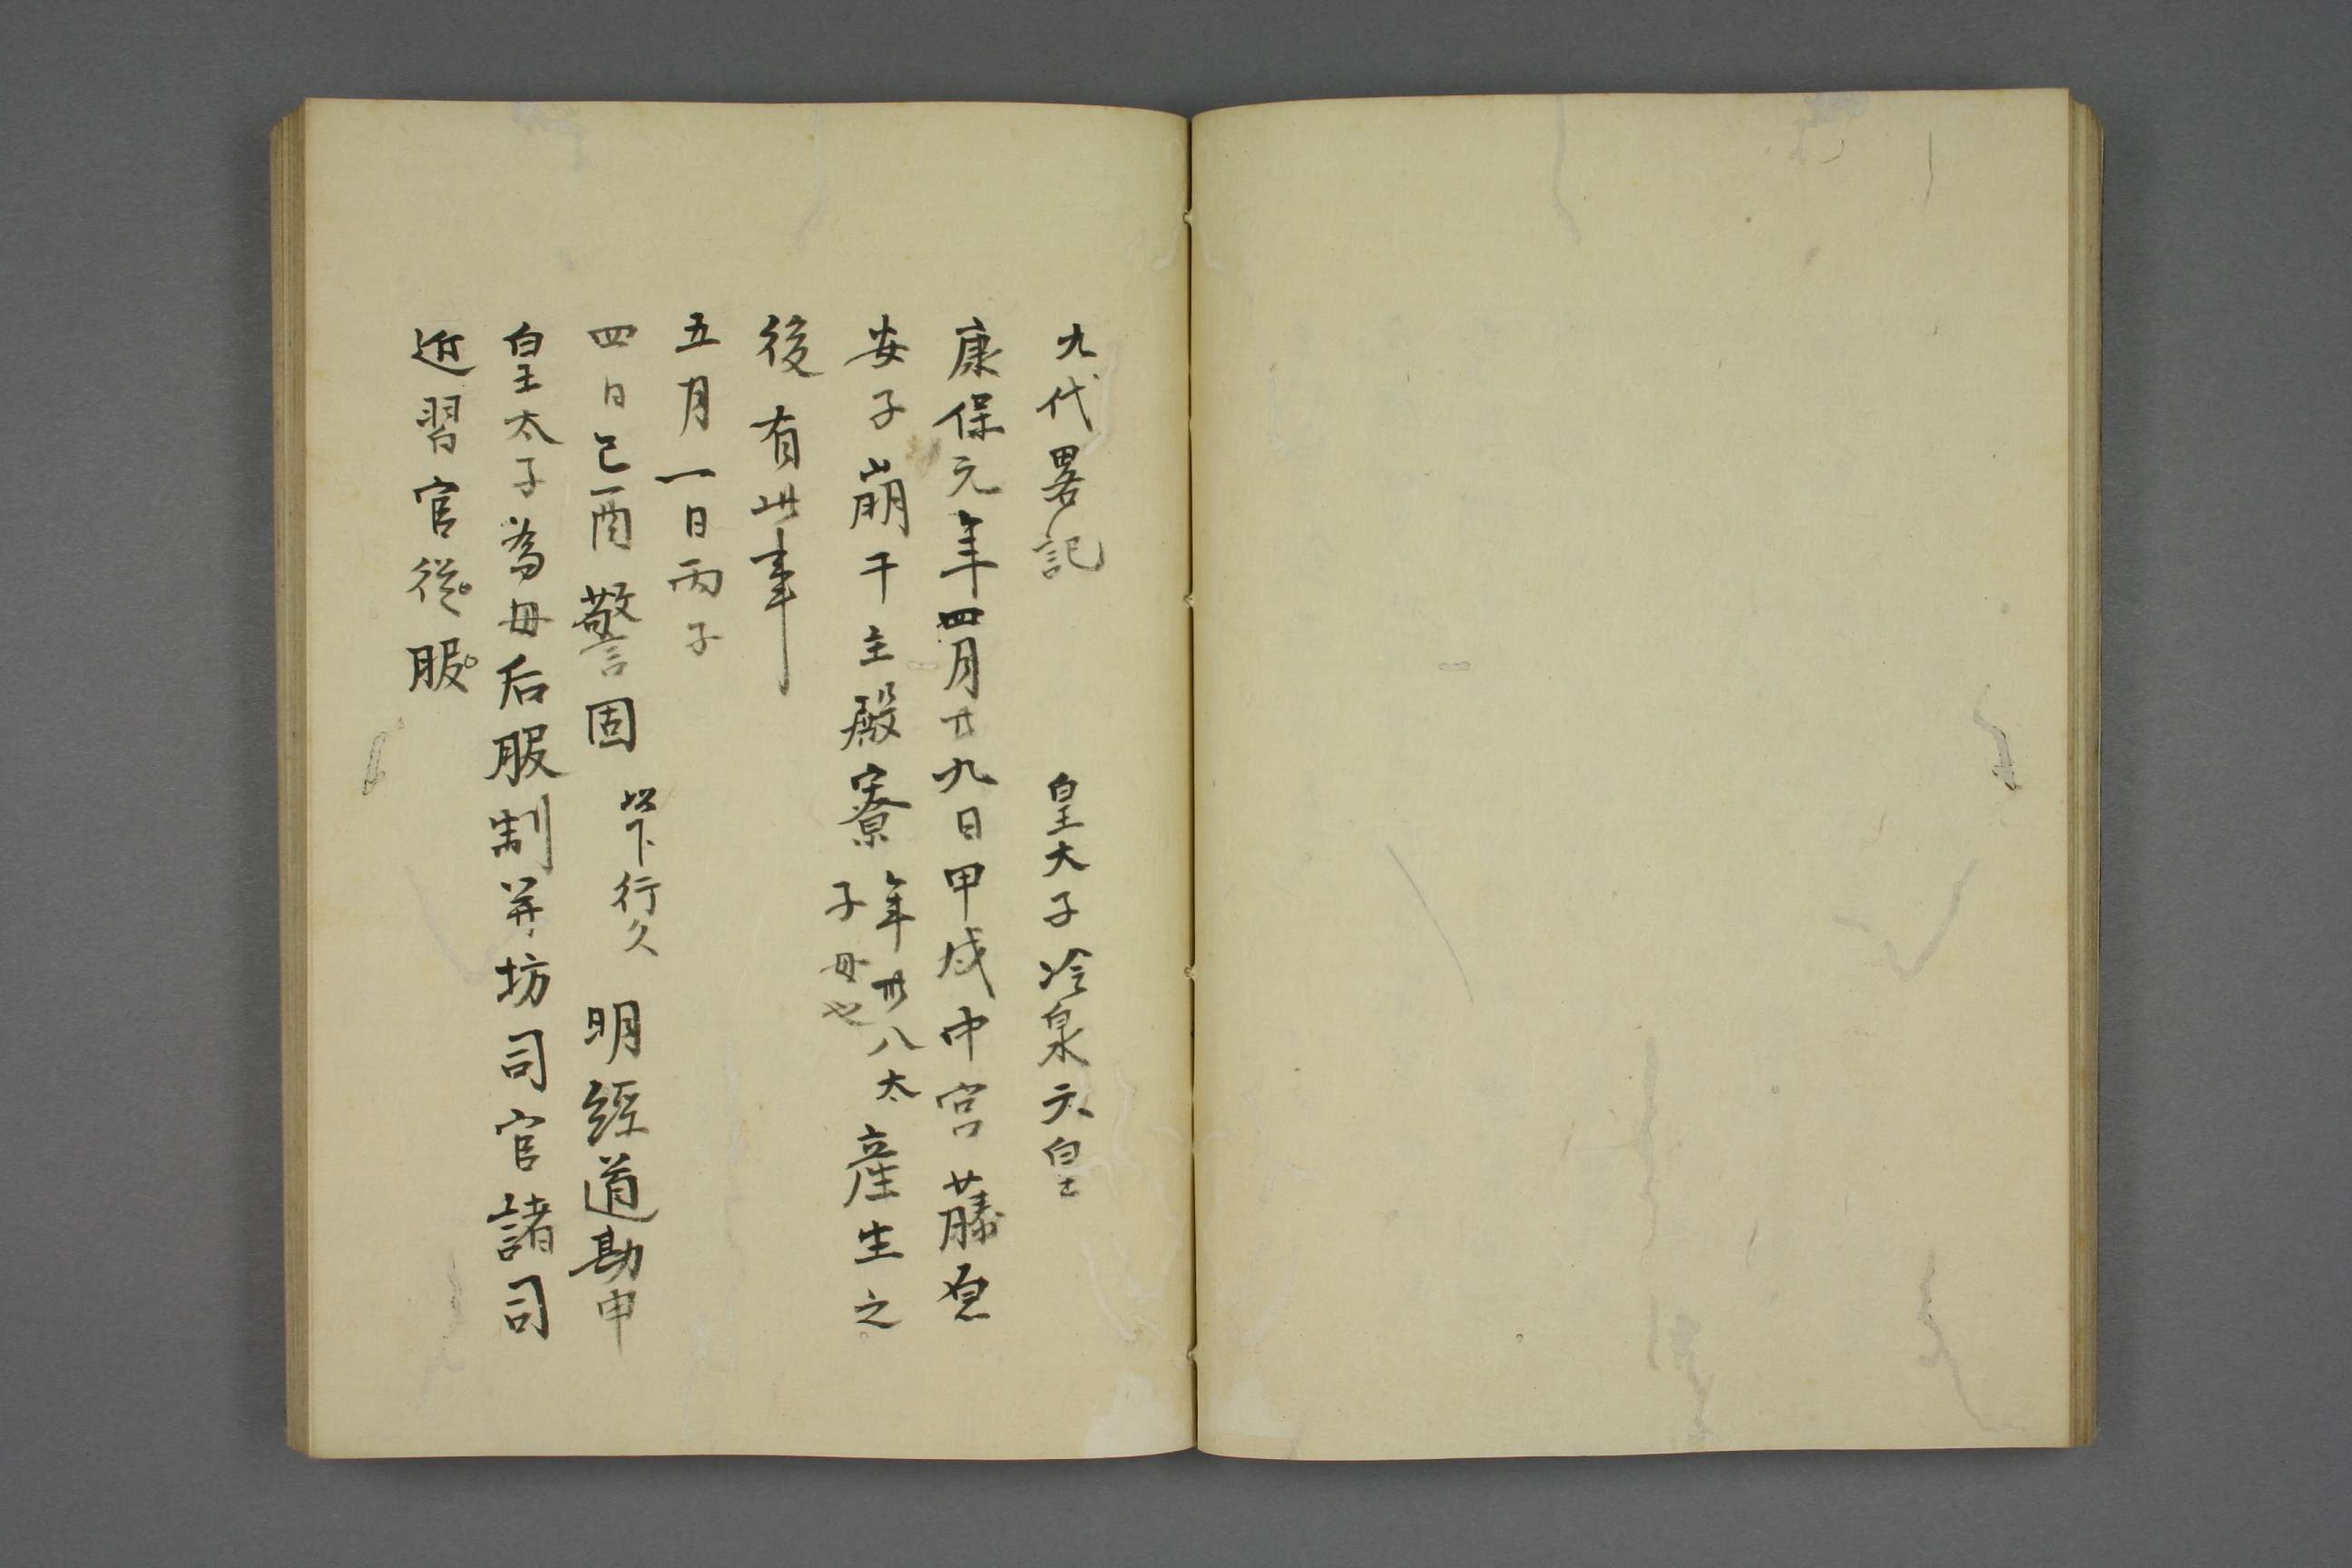 九代畧記　皇大子冷泉天皇
康保元年四月廿九日甲戌中宮藤原
安子崩于主殿寮年卅八太子母也産生之
後有此事
五月一日丙子
四日己酉警固以下行久明經道勘申
皇太子為母后服制并坊司官諸司
近習官從服